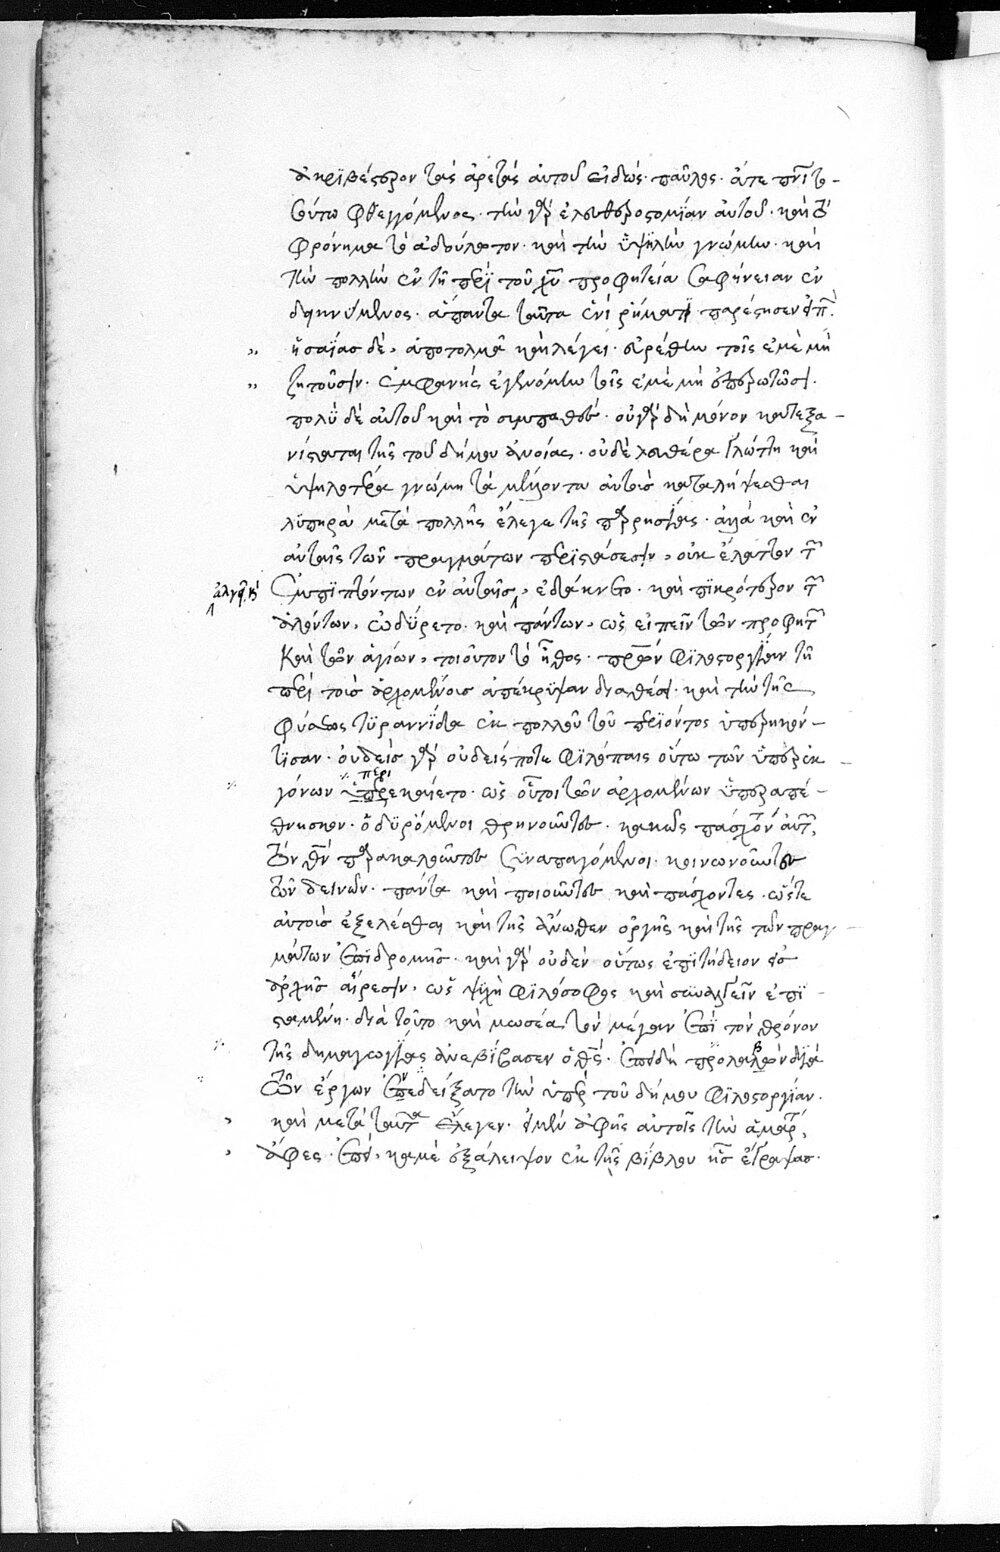 ἀκριβέστερον τὰς ἀρετὰς αὐτοῦ εἰδὼς παῦλος· ἅτε πνι τῶ
οὕτω φθεγγόμενος· τὴν γὰρ ἐλευθεροστομίαν αὐτοῦ· καὶ τὸ
φρόνημα τὸ ἀδούλωτον· καὶ τὴν ὑψηλὴν γνώμην· καὶ
τὴν πολλὴν ἐν τῆ περὶ τοῦ χυ προφητεία σαφήνειαν ἐν
δεικνύμενος· ἅπαντα ταῦτα ἑνὶ ῥήματι παρέστησεν εἰπ·
ἡσαΐας δὲ, ἀποτολμᾶ καὶ λέγει· εὑρέθην τοῖς ἐμὲ μὴ
ζητοῦσιν· ἐμφανὴς ἐγενόμην τοῖς ἐμὲ μὴ ἐπερωτῶσι·
πολὺ δὲ αὐτοῦ καὶ τὸ συμπαθὲς· οὐ γὰρ δὴ μόνον κατεξα-
νίσταται τῆς τοῦ δήμου ἀνοίας· οὐδὲ λευθέρα γλώττη καὶ
ὑψηλοτέρα γνώμη τὰ μέλλοντα αὐτοὺς καταλήψεσθαι
λυπηρὰ μετὰ πολλῆς ἔλεγε τῆς παρρησίας· ἀλλὰ καὶ ἐν
αὐταῖς τῶν πραγμάτων περιστάσεσιν, οὐκ ἔλαττον τῶν
ἐμπιπτόντων ἐν αὐταῖς, ἐδάκνετο· καὶ πικρότερον τῶν
ἁλόντων, ὠδύρετο· καὶ πάντων, ὡς εἰπεῖν τῶν προφητῶν
καὶ τῶν ἁγίων, τοιοῦτον τὸ ἦθος· πρων φιλοστοργίαν τῆ
περὶ τοὺς ἀρχομένους ἀπέκρυψαν διαθέσει· καὶ τὴν τῆς
φύσεως τυραννίδα ἐκ πολλοῦ τοῦ περιόντος ὑπερηκόν-
τισαν· οὐδεὶς γὰρ οὐδείς ποτε φιλόπαις οὕτω τῶν ὑπὲρ ἐκ
γόνων περι ἐκαίετο· ὡς οὗτοι τῶν ἀρχομένων ὑπεραπέ-
θνησκον· ὀδυρόμενοι θρηνοῦντες· κακῶς πασχόντων αὐτῶν,
τὸν θν παρακαλοῦντες συναπαγόμενοι· κοινωνοῦντες
τῶν δεινῶν· πάντα καὶ ποιοῦντες καὶ πάσχοντες· ὥστε
αὐτοὺς ἐξελέσθαι καὶ τῆς ἄνωθεν ὀργῆς καὶ τῆς τῶν πραγ-
μάτων ἐπιδρομῆς· καὶ γὰρ οὐδὲν οὕτως ἐπιτήδειον εἰς
ἀρχῆς αἵρεσιν, ὡς ψυχὴ φιλόσοφος καὶ συναλγεῖν ἐπι-
σταμένη· διὰ τοῦτο καὶ μωσέα τὸν μέγαν ἐπὶ τὸν θρόνον
τῆς δημαγωγίας ἀνεβίβασεν ὁ θς· ἐπειδὴ προλαβὼν διὰ
τῶν ἔργων ἐπεδείξατο τὴν ὑπὲρ τοῦ δήμου φιλοστοργίαν·
καὶ μετὰ ταῦτα ἔλεγεν· εἰ μὲν ἀφῆς αὐτοῖς τὴν ἁμαρ,
ἄφες· ἐπεὶ, καμὲ ἐξάλειψον ἐκ τῆς βίβλου ἧς ἔγραψας·